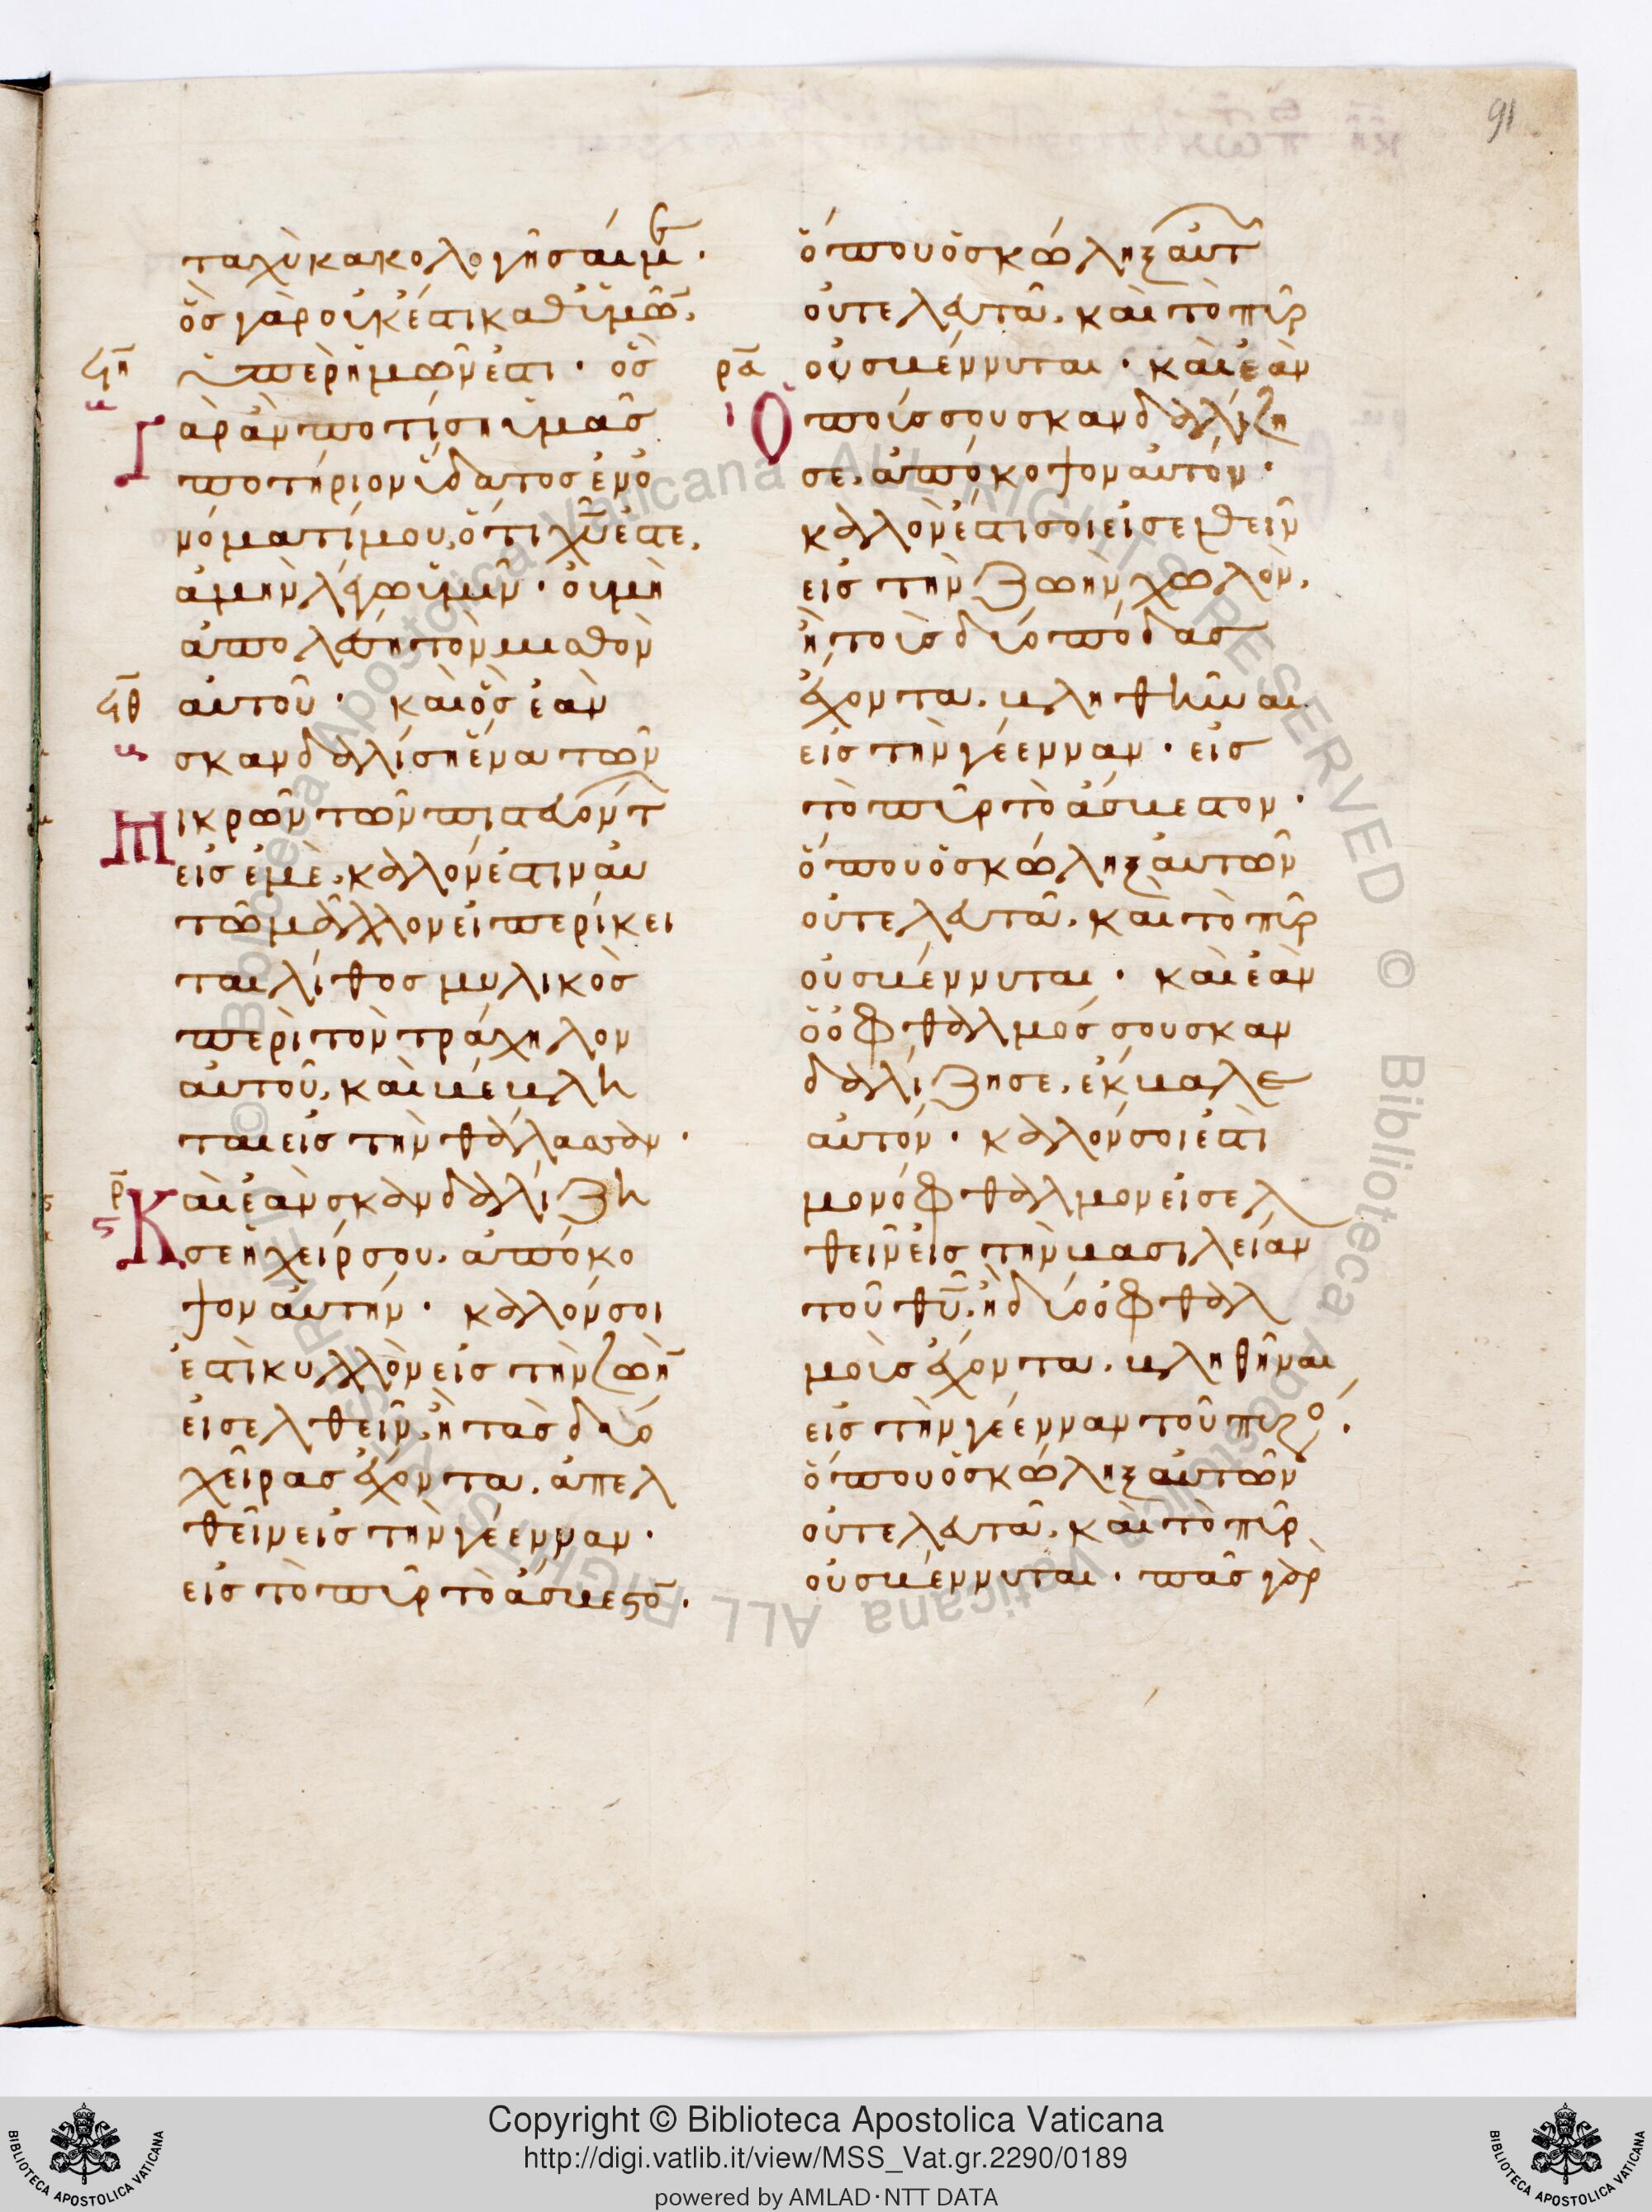 91
ταχὺ κακολογῆσαί με·
ὃς γὰρ οὐκ ἔστι καθ' ὑμῶ̄,
ϟη ὑπὲρ ἡμῶν ἐστι· ὃς
Γὰρ ἂν ποτίσῃ ὑμᾶς
ποτήριον ὕδατος ἐν ὀ
νόματί μου, ὅτι χῡ ἐστε,
ἀμὴν λέγω ὑμῖν· οὐ μὴ
ἀπολέσῃ τὸν μισθὸν
ϟθ αὐτοῦ· καὶ ὃς ἐὰν
σκανδαλίσῃ ἕνα τῶν
Μικρῶν τῶν πιστευόντ
εἰς ἐμὲ, καλόν ἐστιν αὐ
τῶ μᾶλλον εἰ περίκει
ται λίθος μυλικὸς
περὶ τὸν τράχηλον
αὐτοῦ, καὶ βέβλη
ται εἰς τὴν θάλασσαν·
ρ Καὶ ἐὰν σκανδαλίζη
σε ἡ χείρ σου, ἀπόκο
ψον αὐτήν· καλόν σοι
ἐστὶ κυλλὸν εἰς τὴν ζωὴ̄
εἰσελθεῖν, ἢ τὰς δύο
χεῖρας ἔχοντα, ἀπελ
θεῖν εἰς τὴν γέενναν·
εἰς τὸ πῦρ τὸ ἄσβεστο̄·
ὅπου ὁ σκώληξ αὐτ
οὐ τελευτᾶ, καὶ τὸ πῦρ
ρα οὐ σβέννυται· καὶ ἐὰν
Ὁ ποῦς σου σκανδαλίζη
σε, ἀπόκοψον αὐτόν·
καλόν ἐστι σοι εἰσελθεῖν
εἰς τὴν ζωὴν χωλὸν,
ἢ τοὺς δύο πόδας
ἔχοντα, βληθῆναι
εἰς τὴν γέενναν· εἰς
τὸ πῦρ τὸ ἄσβεστον·
ὅπου ὁ σκώληξ αὐτῶν
οὐ τελευτᾶ, καὶ τὸ πῦρ
οὐ σβέννυται· καὶ ἐὰν
ὁ ὀφθαλμός σου σκαν
δαλίζη σε, ἔκβαλε
αὐτόν· καλόν σοι ἐστὶ
μονόφθαλμον εἰσελ
θεῖν εἰς τὴν βασιλείαν
τοῦ θῡ, ἢ δύο ὀφθαλ
μοὺς ἔχοντα, βληθῆναι
εἰς τὴν γέενναν τοῦ πυρό·
ὅπου ὁ σκώληξ αὐτῶν
οὐ τελευτᾶ, καὶ τὸ πῦρ
οὐ σβέννυται· πᾶς γὰρ
Copyright © Biblioteca Apostolica Vaticana
http://digi.vatlib.it/view/MSS_Vat.gr.2290/0189
powered by AMLAD·NTT DATA